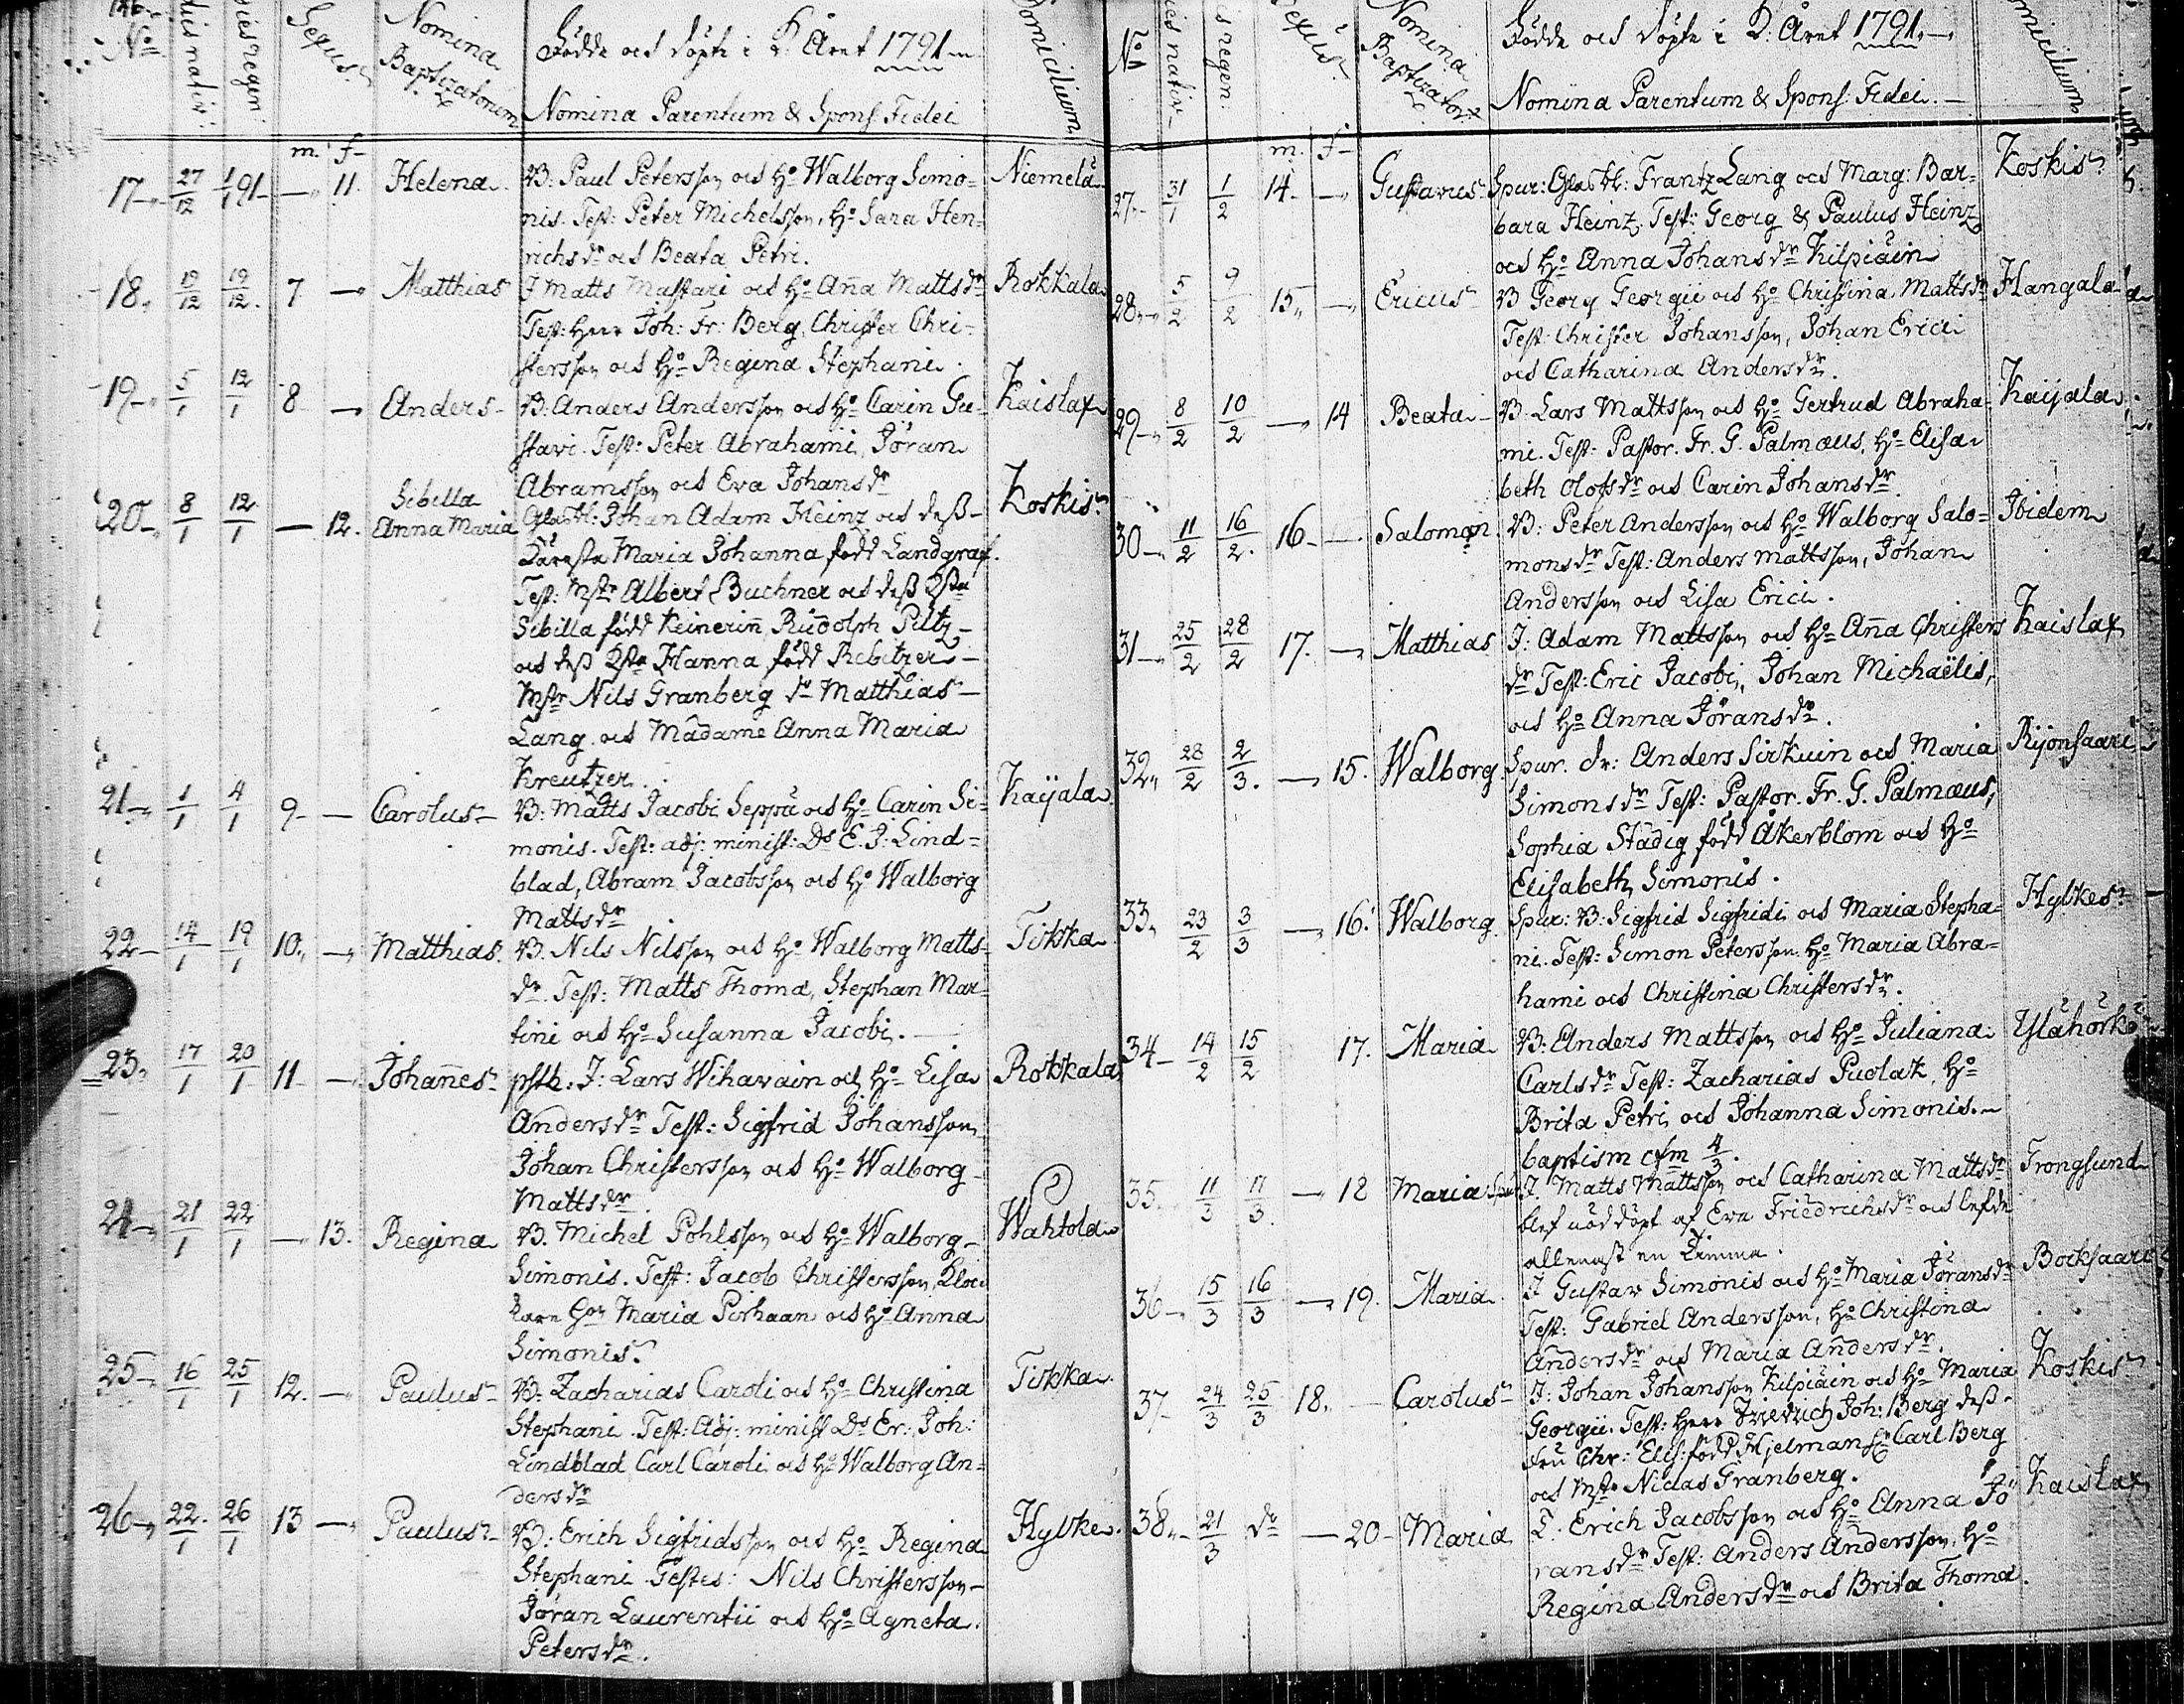 146.
No
dies nativ:
dies regen.
Sexus.
Nomina Baptizatorum
Födde och döpte i K: Året 1791
Nomina Parentum & Spons. Fidei
Domicilium
m. f.
17. 27/12 1/1 91 — 11. Helena. B: Paul Petersson och Ho Walborg Simo= Niemelä
nis. Test: Peter Michelsson, Ho Sara Hen=
richsdr och Beata Petri.
18. 19/12 19/12. 7 — Matthias J Matts Mastari och Ho Aña Mattsdr Rokkala
Test: Herr Joh: Fr: Berg, Christer Chri=
stersson och Ho Regina Stephani.
19. 5/1 12/1 8 — Anders B: Anders Andersson och Ho Carin Gu= Kaislax
stavi. Test: Peter Abrahami, Jöran
Abramsson och Eva Johansdr
20. 8/1 12/1 — 12. Sibilla Koskis
Anna Maria Glasbl: Johan Adam Heinz och dess
Käresta Maria Johanna född Landgraf.
Test: Mstr Albert Buchner och dess Ksta
Sibilla född Keinerin, Rudolph Piltz
och dess Ksta Hanna född Rebitzer
Mstr Nils Granberg do Matthias
Lang och Madame Anna Maria
Kreutzer.
21. 1/1 4/1 9 — Carolus B: Matts Jacobi Seppä och Ho Carin Si= Kaijala
monis. Test: adj: minist: Ds E. J. Lind=
blad, Abram Jacobsson och Ho Walborg
Mattsdr
22 14/1 19/1 10. — Matthias. B. Nils Nilsson och Ho Walborg Matts= Tikka
dr. Test: Matts Thomæ, Stephan Mar=
tini och Ho Susanna Jacobi.
23. 17/1 20/1 11 — Johañes J: Lars Wihavain och Ho Lisa Rokkala
Andersdr Test: Sigfrid Johansson,
Johan Christersson och Ho Walborg
Mattsdr.
24 21/1 22/1 — 13. Regina B. Michel Pohlsson och Ho Walborg Wahtola
Simonis. Test: Jacob Christersson, Kloc
Maria Pirhaan och Ho Anna
Simonis.
25 16/1 25/1 12. — Paulus B: Zacharias Caroli och Ho Christina Tikka
Stephani. Test: Adj: minist Ds Er: Joh:
Lindblad Carl Caroli och Ho Walborg An=
dersdr
26 22/1 26/1 13 — Paulus B: Erich Sigfridsson och Ho Regina Hylke
Stephani. Testes: Nils Christersson
Jöran Laurentii och Ho Agneta
Petersdr.
No
dies nativ
dies regen.
Sexus.
Nomina Baptizator:
Födde och döpte i K: Året 1791.
Nomina Parentum & Spons: Fidei.
Domicilium
m. f.
27. 31/1 1/2 14. — Gustavus Spur: Glasbl: Frantz Lang och Marg: Bar= Koskis
bara Heinz. Test: Georg & Paulus Heinz
och Ho Anna Johansdr Kilpiäin
28. 5/2 9/2 15. — Ericus B Georg Georgii och Ho Christina Mattsdr Kangala
Test: Christer Johansson, Johan Erici
och Catharina Andersdr.
29. 8/2 10/2 — 14 Beata B. Lars Mattsson och Ho Gertrud Abraha= Kaijala
mi. Test: Pastor. Fr. G. Palmæus, Ho Elisa
beth Olofsdr och Carin Johansdr
30 11/2 16/2. 16 — Salomon B: Peter Andersson och Ho Walborg Salo= Ibidem
monsdr Test: Anders Mattsson, Johan
Andersson och Lisa Erici.
31 25/2 28/2 17. — Matthias J: Adam Mattsson och Ho Aña Christers Kaislax
dr Test: Eric Jacobi, Johan Michaëlis,
och Ho Anna Jöransdr.
32. 28/2 2/3. — 15. Walborg Spur. dr: Anders Sirkuin och Maria Rijonsaari
Simonsdr Test: Pastor. Fr. G. Palmæus,
Sophia Städig född Åkerblom och Ho
Elisabeth Simonis.
33. 23/2 3/3 — 16. Walborg. Spur: B: Sigfrid Sigfridi och Maria Stepha= Hylkes
ni. Test: Simon Petersson. Ho Maria Abra=
hami och Christina Christersdr.
34 14/2 15/2 17. Maria B: Anders Mattsson och Ho Juliana Ylähörkö
Carlsdr Test: Zacharias Puolak, Ho
Brita Petri och Johanna Simonis.
baptism cfm 4/3.
35. 11/3 11/3. — 18 Maria J. Matts Mattsson och Catharina Mattsdr Trongsund
blef nöddöpt af Eva Friedrichsdr och lefde
allenast en timma.
36 15/3 16/3 — 19. Maria J Gustav Simonis och Ho Maria Jöransdr Bocksaari
Test: Gabriel Andersson, Ho Christina
Andersdr och Maria Andersdr.
37 24/3 25/3 18. — Carolus J: Johan Johansson Kilpiäin och Ho Maria Koskis
Georgii. Test: Herr Friedrich Joh: Berg dess
fru Chr: Elis: född Hjelman Carl Berg
och Mstr Niclas Granberg.
38. 21/3 do — 20 Maria J. Erich Jacobsson och Ho Anna Jö Kaislax
ransdr Test: Anders Andersson, Ho
Regina Andersdr och Brita Thomæ.